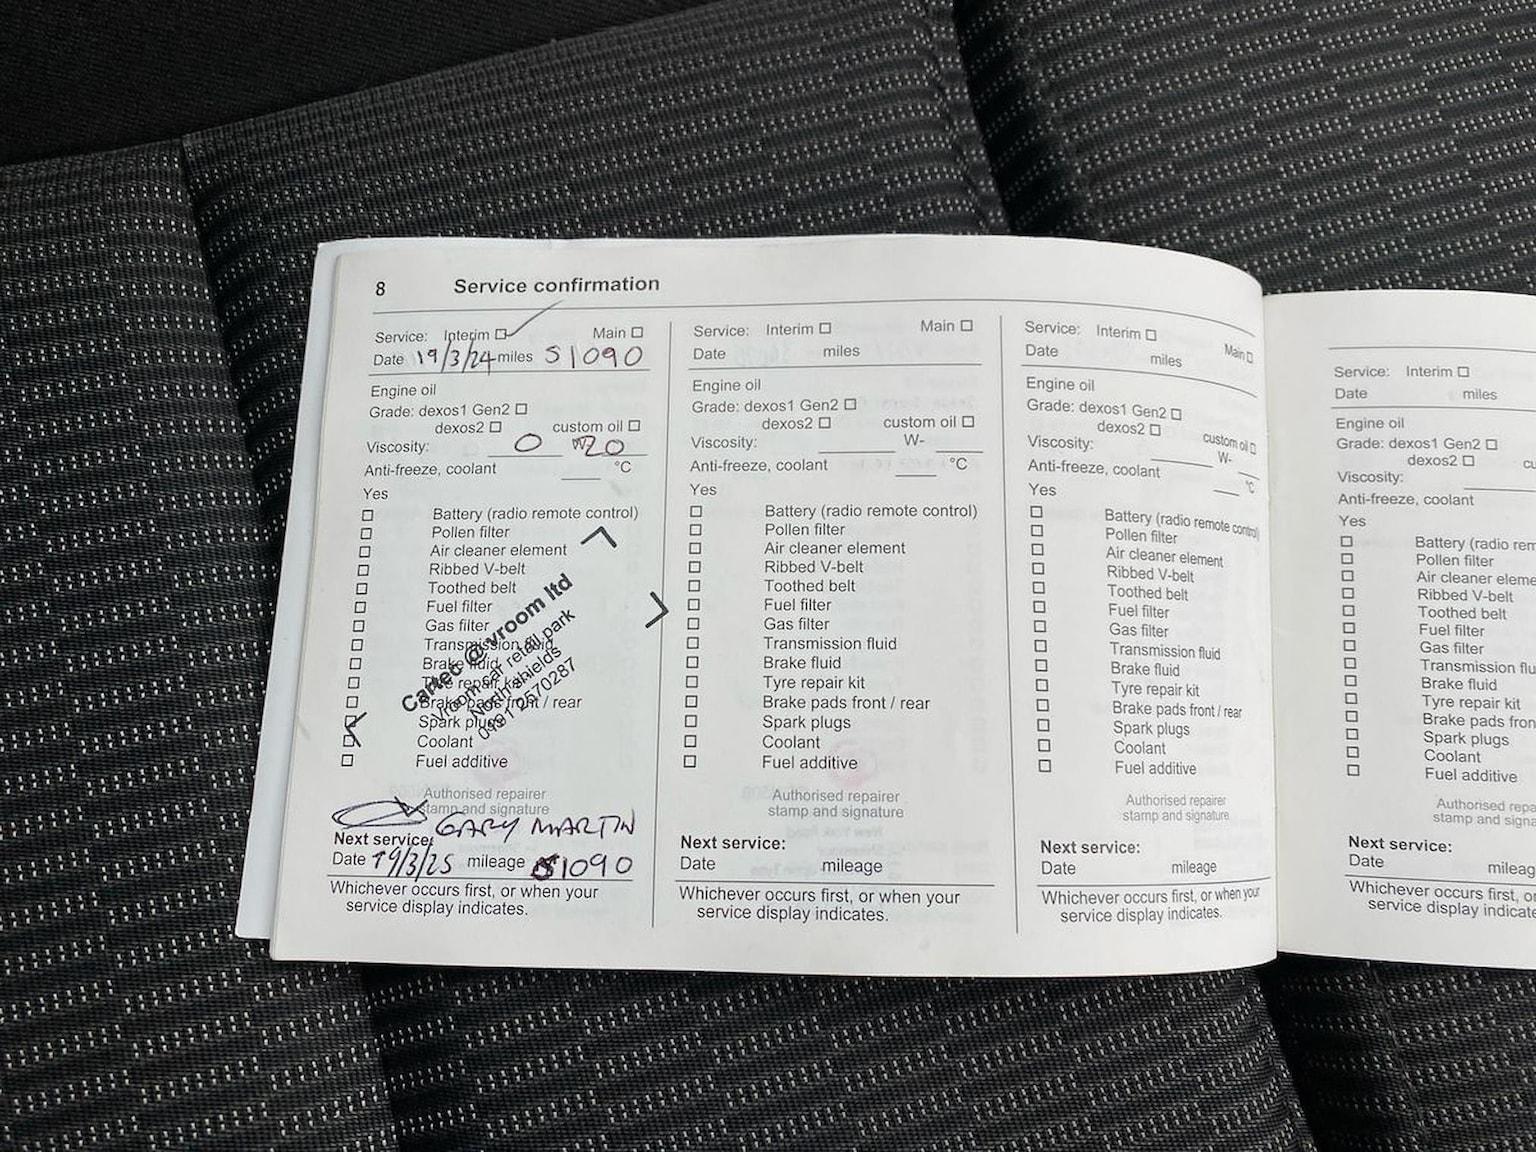 8 Service confirmation
Service: Interim ☐ Main ☐
Date 19/3/24 miles 51090
Engine oil
Grade: dexos1 Gen2 ☐
dexos2 ☐ custom oil ☐
Viscosity: 0 W- 20
Anti-freeze, coolant °C
Yes
☐ Battery (radio remote control)
☐ Pollen filter
☐ Air cleaner element
☐ Ribbed V-belt
☐ Toothed belt
☐ Fuel filter
☐ Gas filter
☐ Transmission fluid
☐ Brake fluid
☐ Tyre repair kit
☐ Brake pads front / rear
☐ Spark plugs
☐ Coolant
☐ Fuel additive
Cartec @ vroom ltd
Vroom car retail park
North shields
0191 2570287
Authorised repairer
stamp and signature
GARY MARTIN
Next service:
Date 19/3/25 mileage 1090
Whichever occurs first, or when your
service display indicates.
Service: Interim ☐ Main ☐
Date miles
Engine oil
Grade: dexos1 Gen2 ☐
dexos2 ☐ custom oil ☐
Viscosity: W-
Anti-freeze, coolant °C
Yes
☐ Battery (radio remote control)
☐ Pollen filter
☐ Air cleaner element
☐ Ribbed V-belt
☐ Toothed belt
☐ Fuel filter
☐ Gas filter
☐ Transmission fluid
☐ Brake fluid
☐ Tyre repair kit
☐ Brake pads front / rear
☐ Spark plugs
☐ Coolant
☐ Fuel additive
Authorised repairer
stamp and signature
Next service:
Date mileage
Whichever occurs first, or when your
service display indicates.
Service: Interim ☐ Main ☐
Date miles
Engine oil
Grade: dexos1 Gen2 ☐
dexos2 ☐ custom oil ☐
Viscosity: W-
Anti-freeze, coolant °C
Yes
☐ Battery (radio remote control)
☐ Pollen filter
☐ Air cleaner element
☐ Ribbed V-belt
☐ Toothed belt
☐ Fuel filter
☐ Gas filter
☐ Transmission fluid
☐ Brake fluid
☐ Tyre repair kit
☐ Brake pads front / rear
☐ Spark plugs
☐ Coolant
☐ Fuel additive
Authorised repairer
stamp and signature
Next service:
Date mileage
Whichever occurs first, or when your
service display indicates.
Service: Interim ☐
Date miles
Engine oil
Grade: dexos1 Gen2 ☐
dexos2 ☐ cu
Viscosity:
Anti-freeze, coolant
Yes
☐ Battery (radio rem
☐ Pollen filter
☐ Air cleaner eleme
☐ Ribbed V-belt
☐ Toothed belt
☐ Fuel filter
☐ Gas filter
☐ Transmission flu
☐ Brake fluid
☐ Tyre repair kit
☐ Brake pads fron
☐ Spark plugs
☐ Coolant
☐ Fuel additive
Authorised repa
stamp and signa
Next service:
Date mileag
Whichever occurs first, o
service display indicate